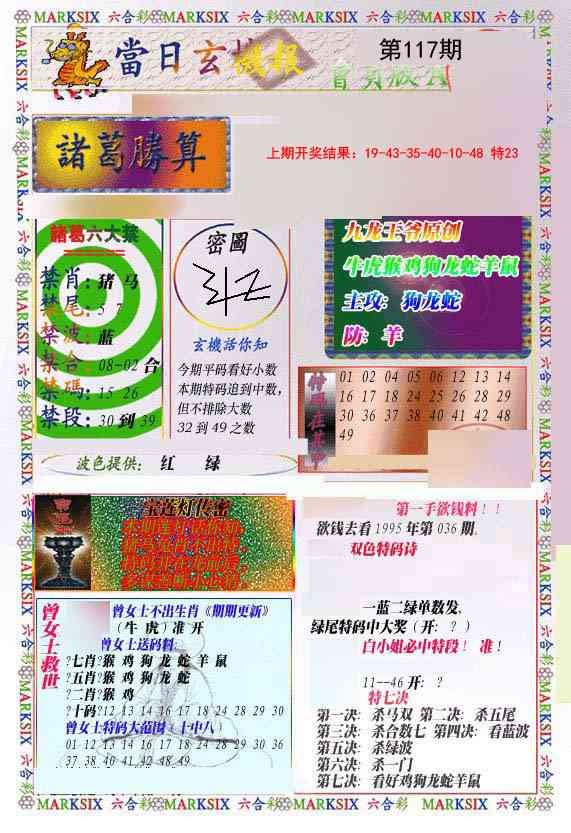 MARKSIX 六合彩 MARKSIX 六合彩 MARKSIX 六合彩 MARKSIX 六合彩 MARKSIX 六合彩
當日玄機報
第117期
諸葛勝算
上期开奖结果：19-43-35-40-10-48 特23
諸葛六大禁
禁肖：猪 马
禁尾：5 7
禁波：蓝
禁合：08-02 合
禁碼：15 26
禁段：30 到 39
密圖
玄機话你知
今期平码看好小数
本期特码追到中数，
但不排除大数
32 到 49 之数
九龙王爷原创
牛虎猴鸡狗龙蛇羊鼠
主攻：狗龙蛇
防：羊
01 02 04 05 06 12 13 14
16 17 18 24 25 26 28 29
30 36 37 38 40 41 42 48
49
波色提供： 红 绿
宝莲灯传密
曾女士救世
曾女士不出生肖《期期更新》
（牛 虎）准 开
曾女士送码料
?七肖?猴 鸡 狗 龙 蛇 羊 鼠
?五肖?猴 鸡 狗 龙 蛇
?二肖?猴 鸡
?十码?12 13 14 16 17 18 24 28 29 30
曾女士特码大范围（十中八）
01 12 13 14 16 17 18 24 28 29 30 36
37 38 40 41 42 48 49
第一手欲钱料！！
欲钱去看 1995 年第 036 期.
双色特码诗
一蓝二绿单数发,
绿尾特码中大奖（开: ？）
白小姐必中特段！ 准！
11--46 开: ？
特七决
第一决: 杀马双 第二决: 杀五尾
第三决: 杀合数七 第四决: 看蓝波
第五决: 杀绿波
第六决: 杀一门
第七决: 看好鸡狗龙蛇羊鼠
MARKSIX 六合彩 MARKSIX 六合彩 MARKSIX 六合彩 MARKSIX 六合彩 MARKSIX 六合彩